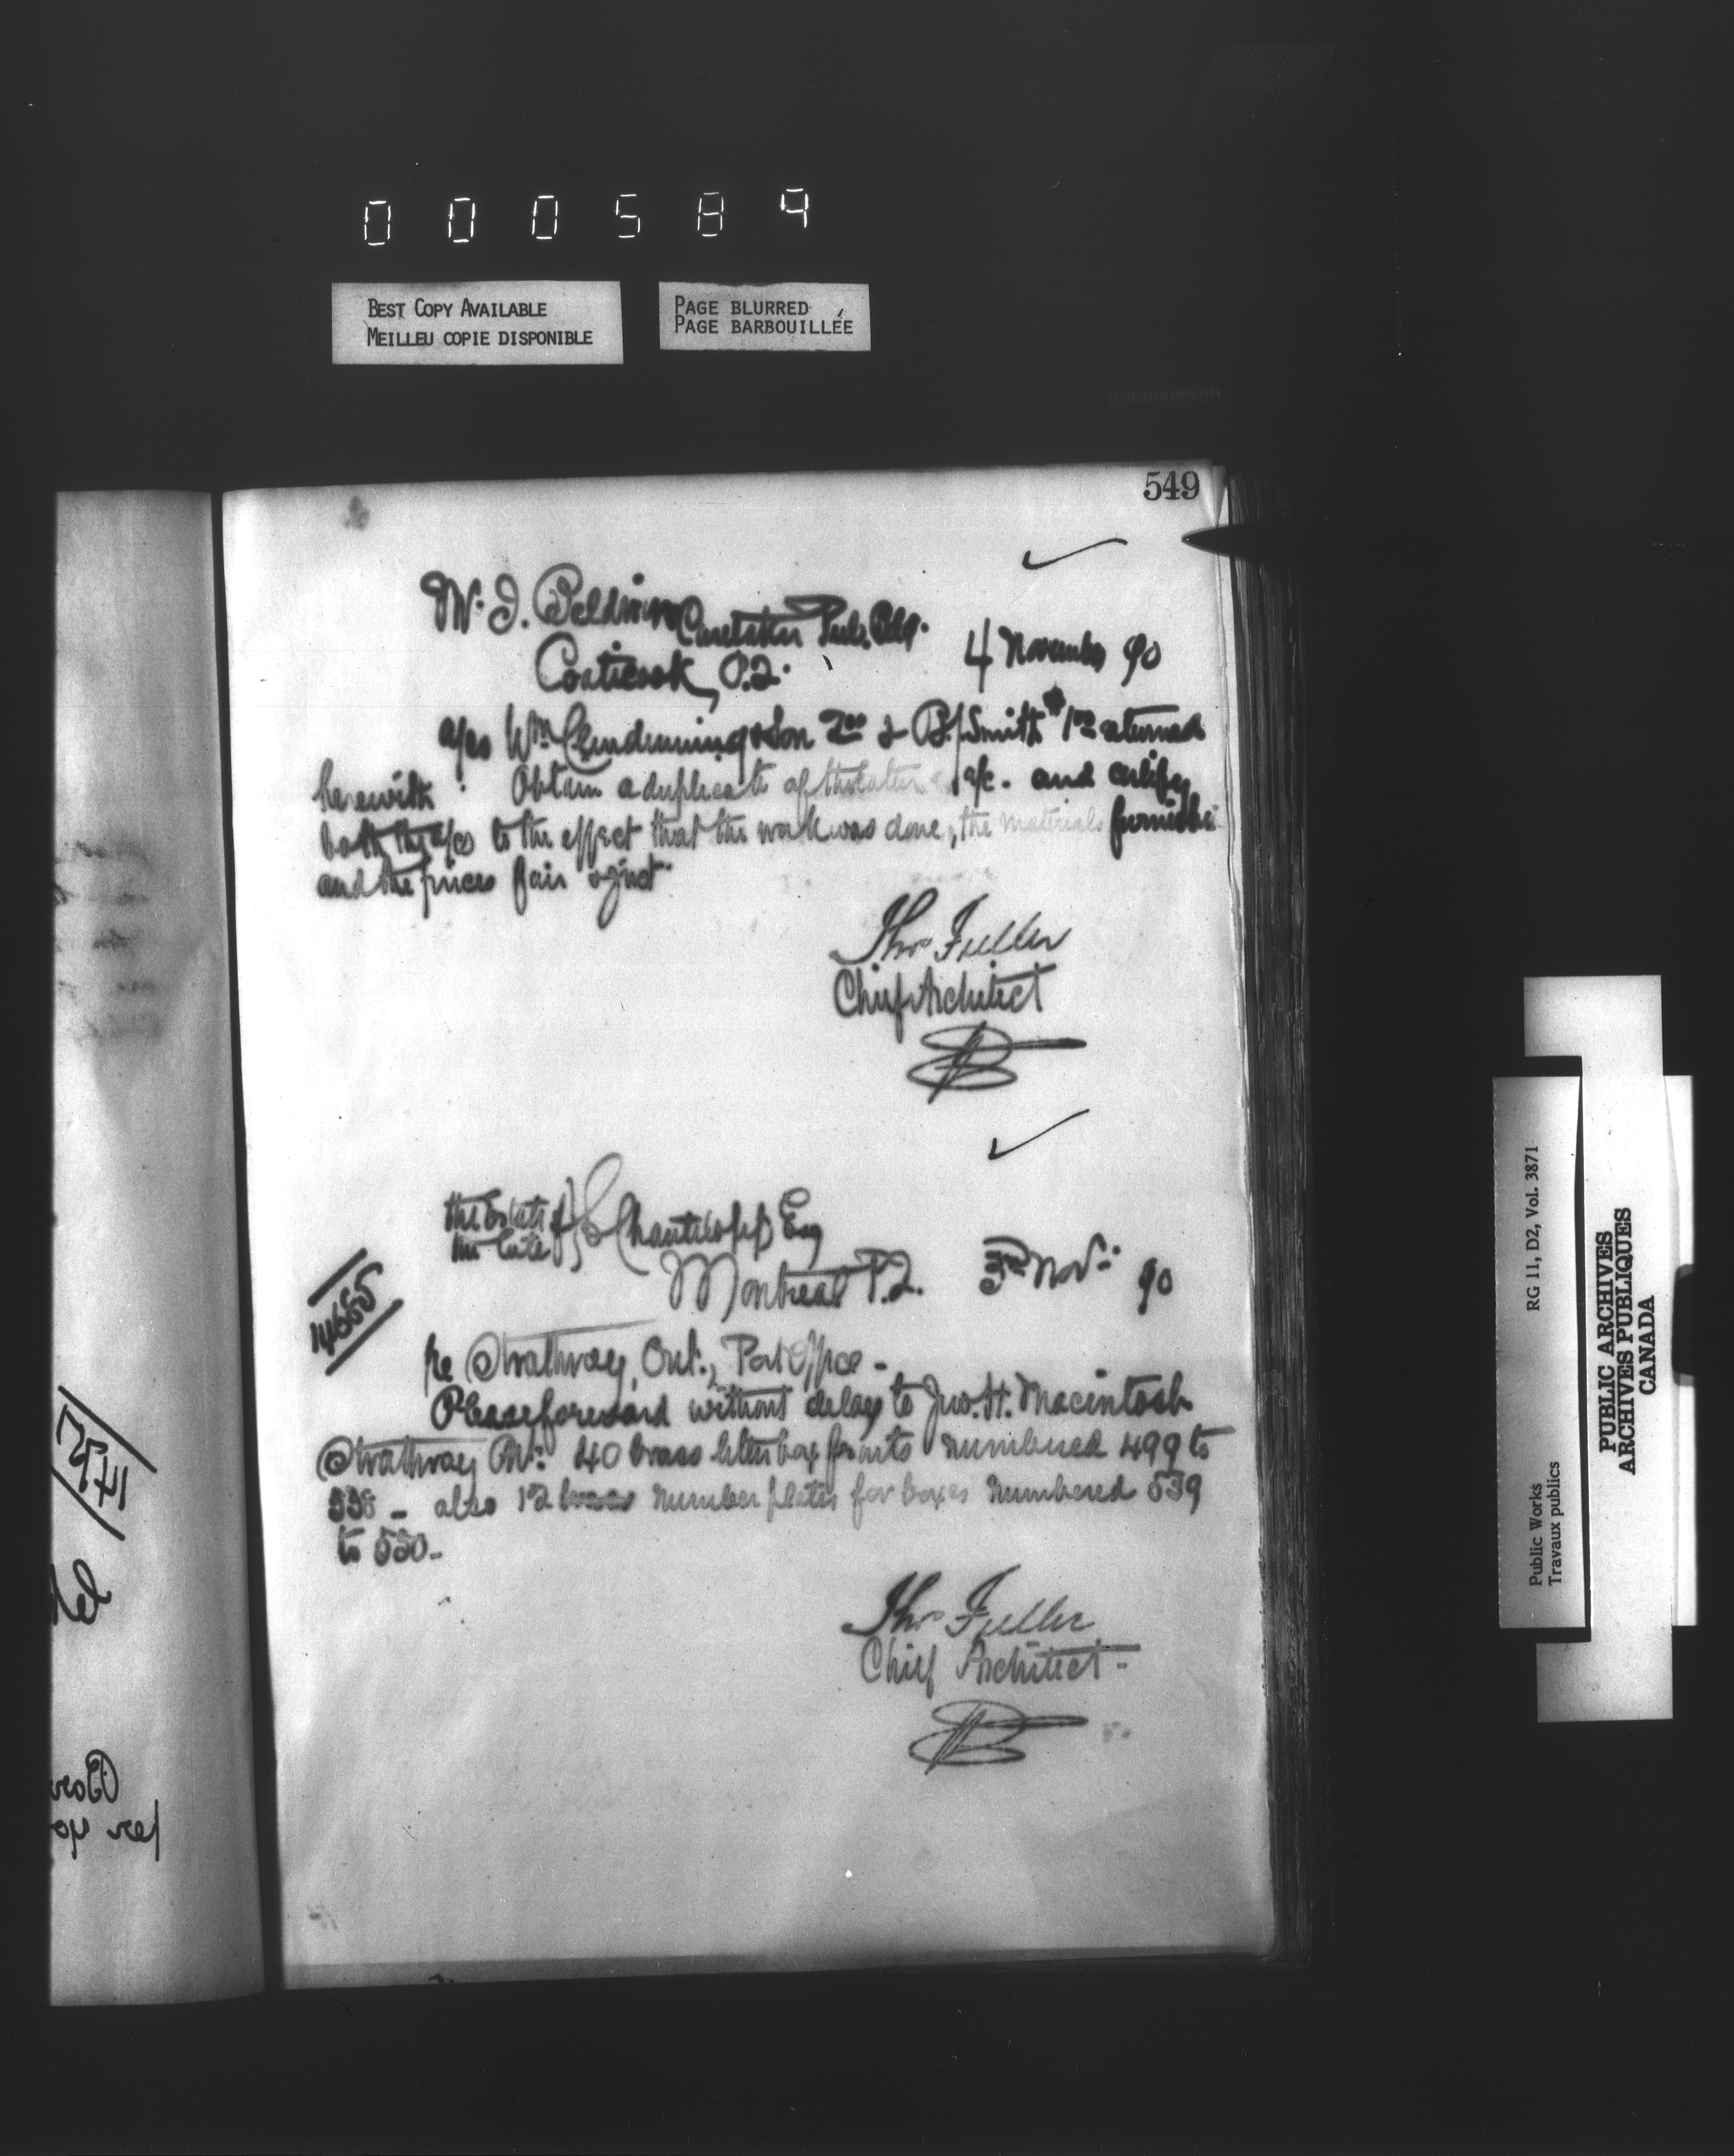 000584
BEST COPY AVAILABLE
MEILLEU COPIE DISPONIBLE
PAGE BLURRED
PAGE BARBOUILLÉE
549
Mr. J. Baldwin Caretaker Pub. Bldg.
Coaticook, P.Q.
4 November 90
a/cs Wm Clendinning & Son & B. Smith returned
herewith. Obtain a duplicate of the latter a/c. and certify
both the a/cs to the effect that the work was done, the materials furnished
and the prices fair & just.
Thos Fuller
Chief Architect
The Estate of
the late
E Chanteloup Esq
Montreal P.Q. 3rd Nov: 90
14655
re Strathroy, Ont., Post Office -
Please forward without delay to Jno. H. Macintosh
Strathroy Ont: 40 brass letter box fronts numbered 499 to
538 - also 12 brass number plates for boxes numbered 539
to 550 -
Thos Fuller
Chief Architect -
RG 11, D2, Vol. 3871
Public Works
Travaux publics
PUBLIC ARCHIVES
ARCHIVES PUBLIQUES
CANADA